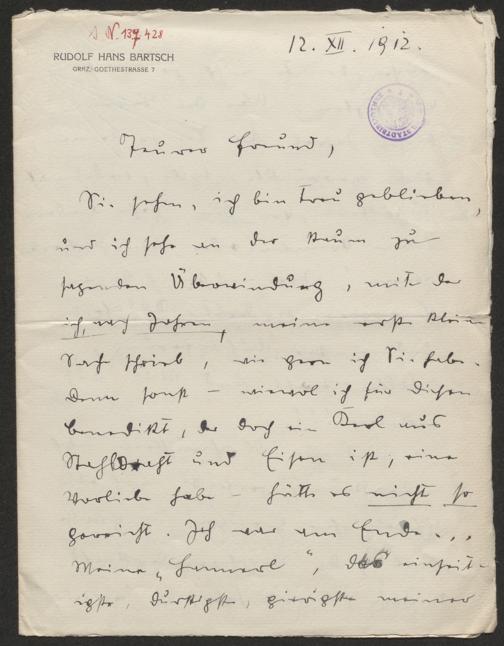 N. 137.428
12. XII. 1912.
RUDOLF HANS BARTSCH
GRAZ, GOETHESTRASSE 7
Teurer Freund,
Sie sehen, ich bin treu geblieben,
und ich sehe an der kaum zu
sagenden Überwindung, mit der
ich, nach Jahren, meine erste kleine
Sache schrieb, wie gern ich Sie habe.
Denn sonst – wiewol ich für diesen
Benedikt, der doch ein Kerl aus
Stahldraht und Eisen ist, eine
Vorliebe habe – hätte es nicht so
gereicht. Ich war am Ende...
Meine „Hannerl“, das einheit-
igste, durstigste, gierigste meiner